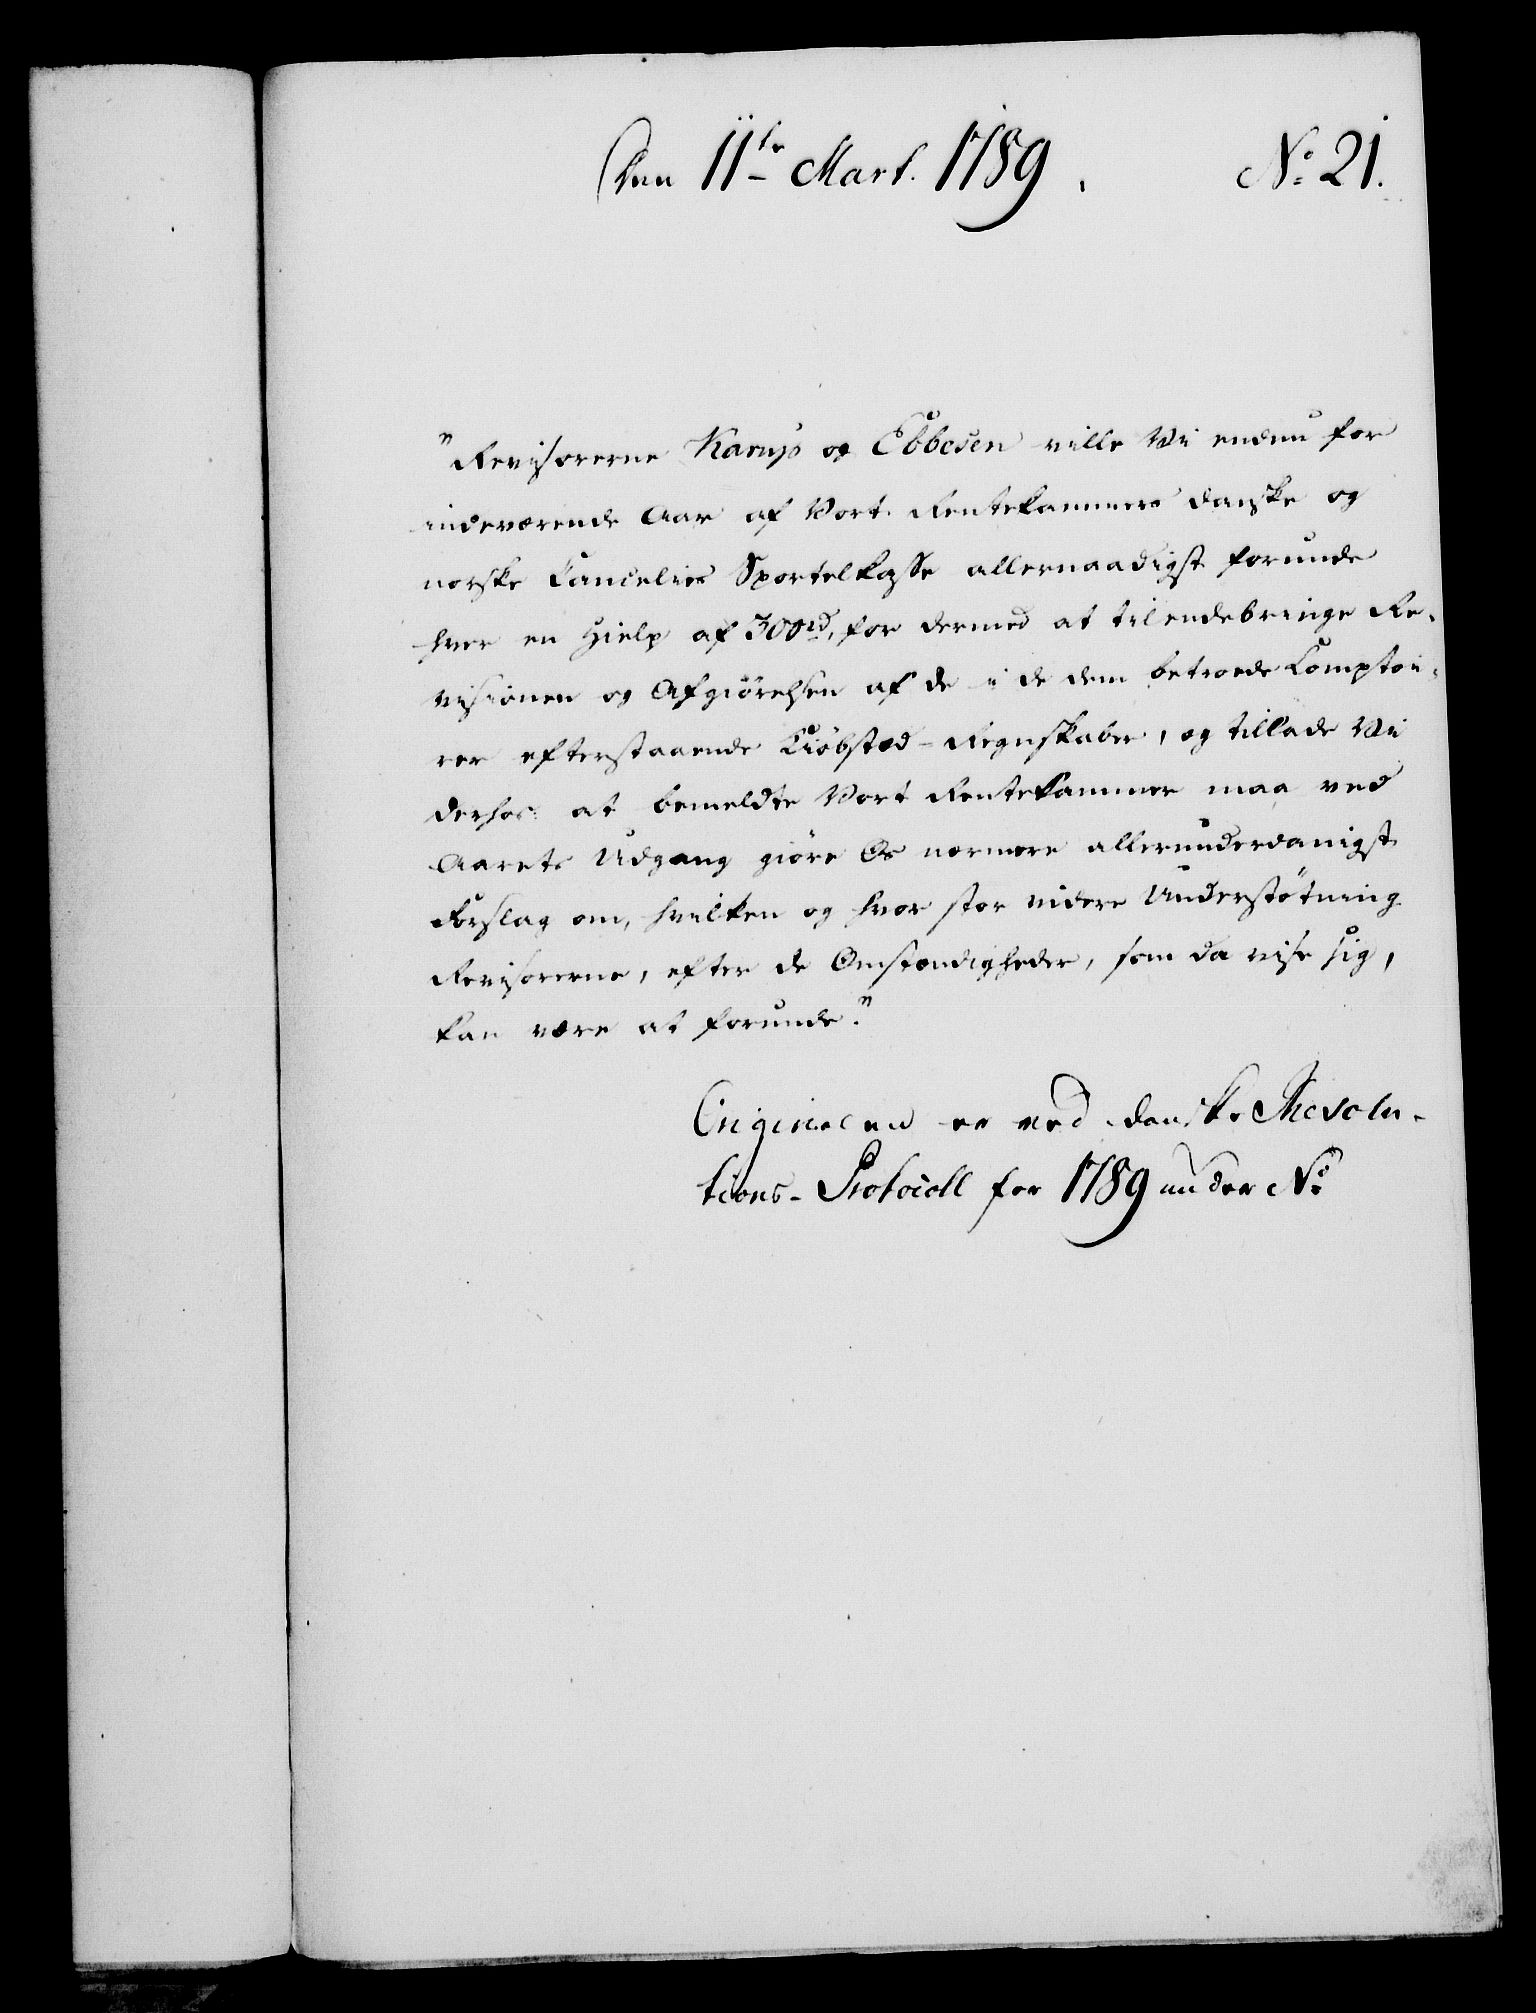 Den 11te Mart. 1789. No 21.
"Revisorerne Karup og Ebbesen ville Vi endnu for
indeværende Aar af Vort Rentekammers danske og
norske Cancelies Sportelkasse allernaadigst forunde
hver en Hielp af 300rd, for dermed at tilendebringe Re-
visionen og Afgiørelsen af de i de dem betroede Comptoi-
rer efterstaaende Kiøbstæd-Regnskaber, og tillade Vi
derhos at bemeldte Vort Rentekammer maa ved
Aarets Udgang giøre Os nærmere allerunderdanigst
Forslag om, hvilken og hvor stor videre Understøtning
Revisorerne, efter de Omstændigheder, som da vise sig,
kan være at forunde."
Originalen er ved danske Resolu-
tions-Protocoll for 1789 under No